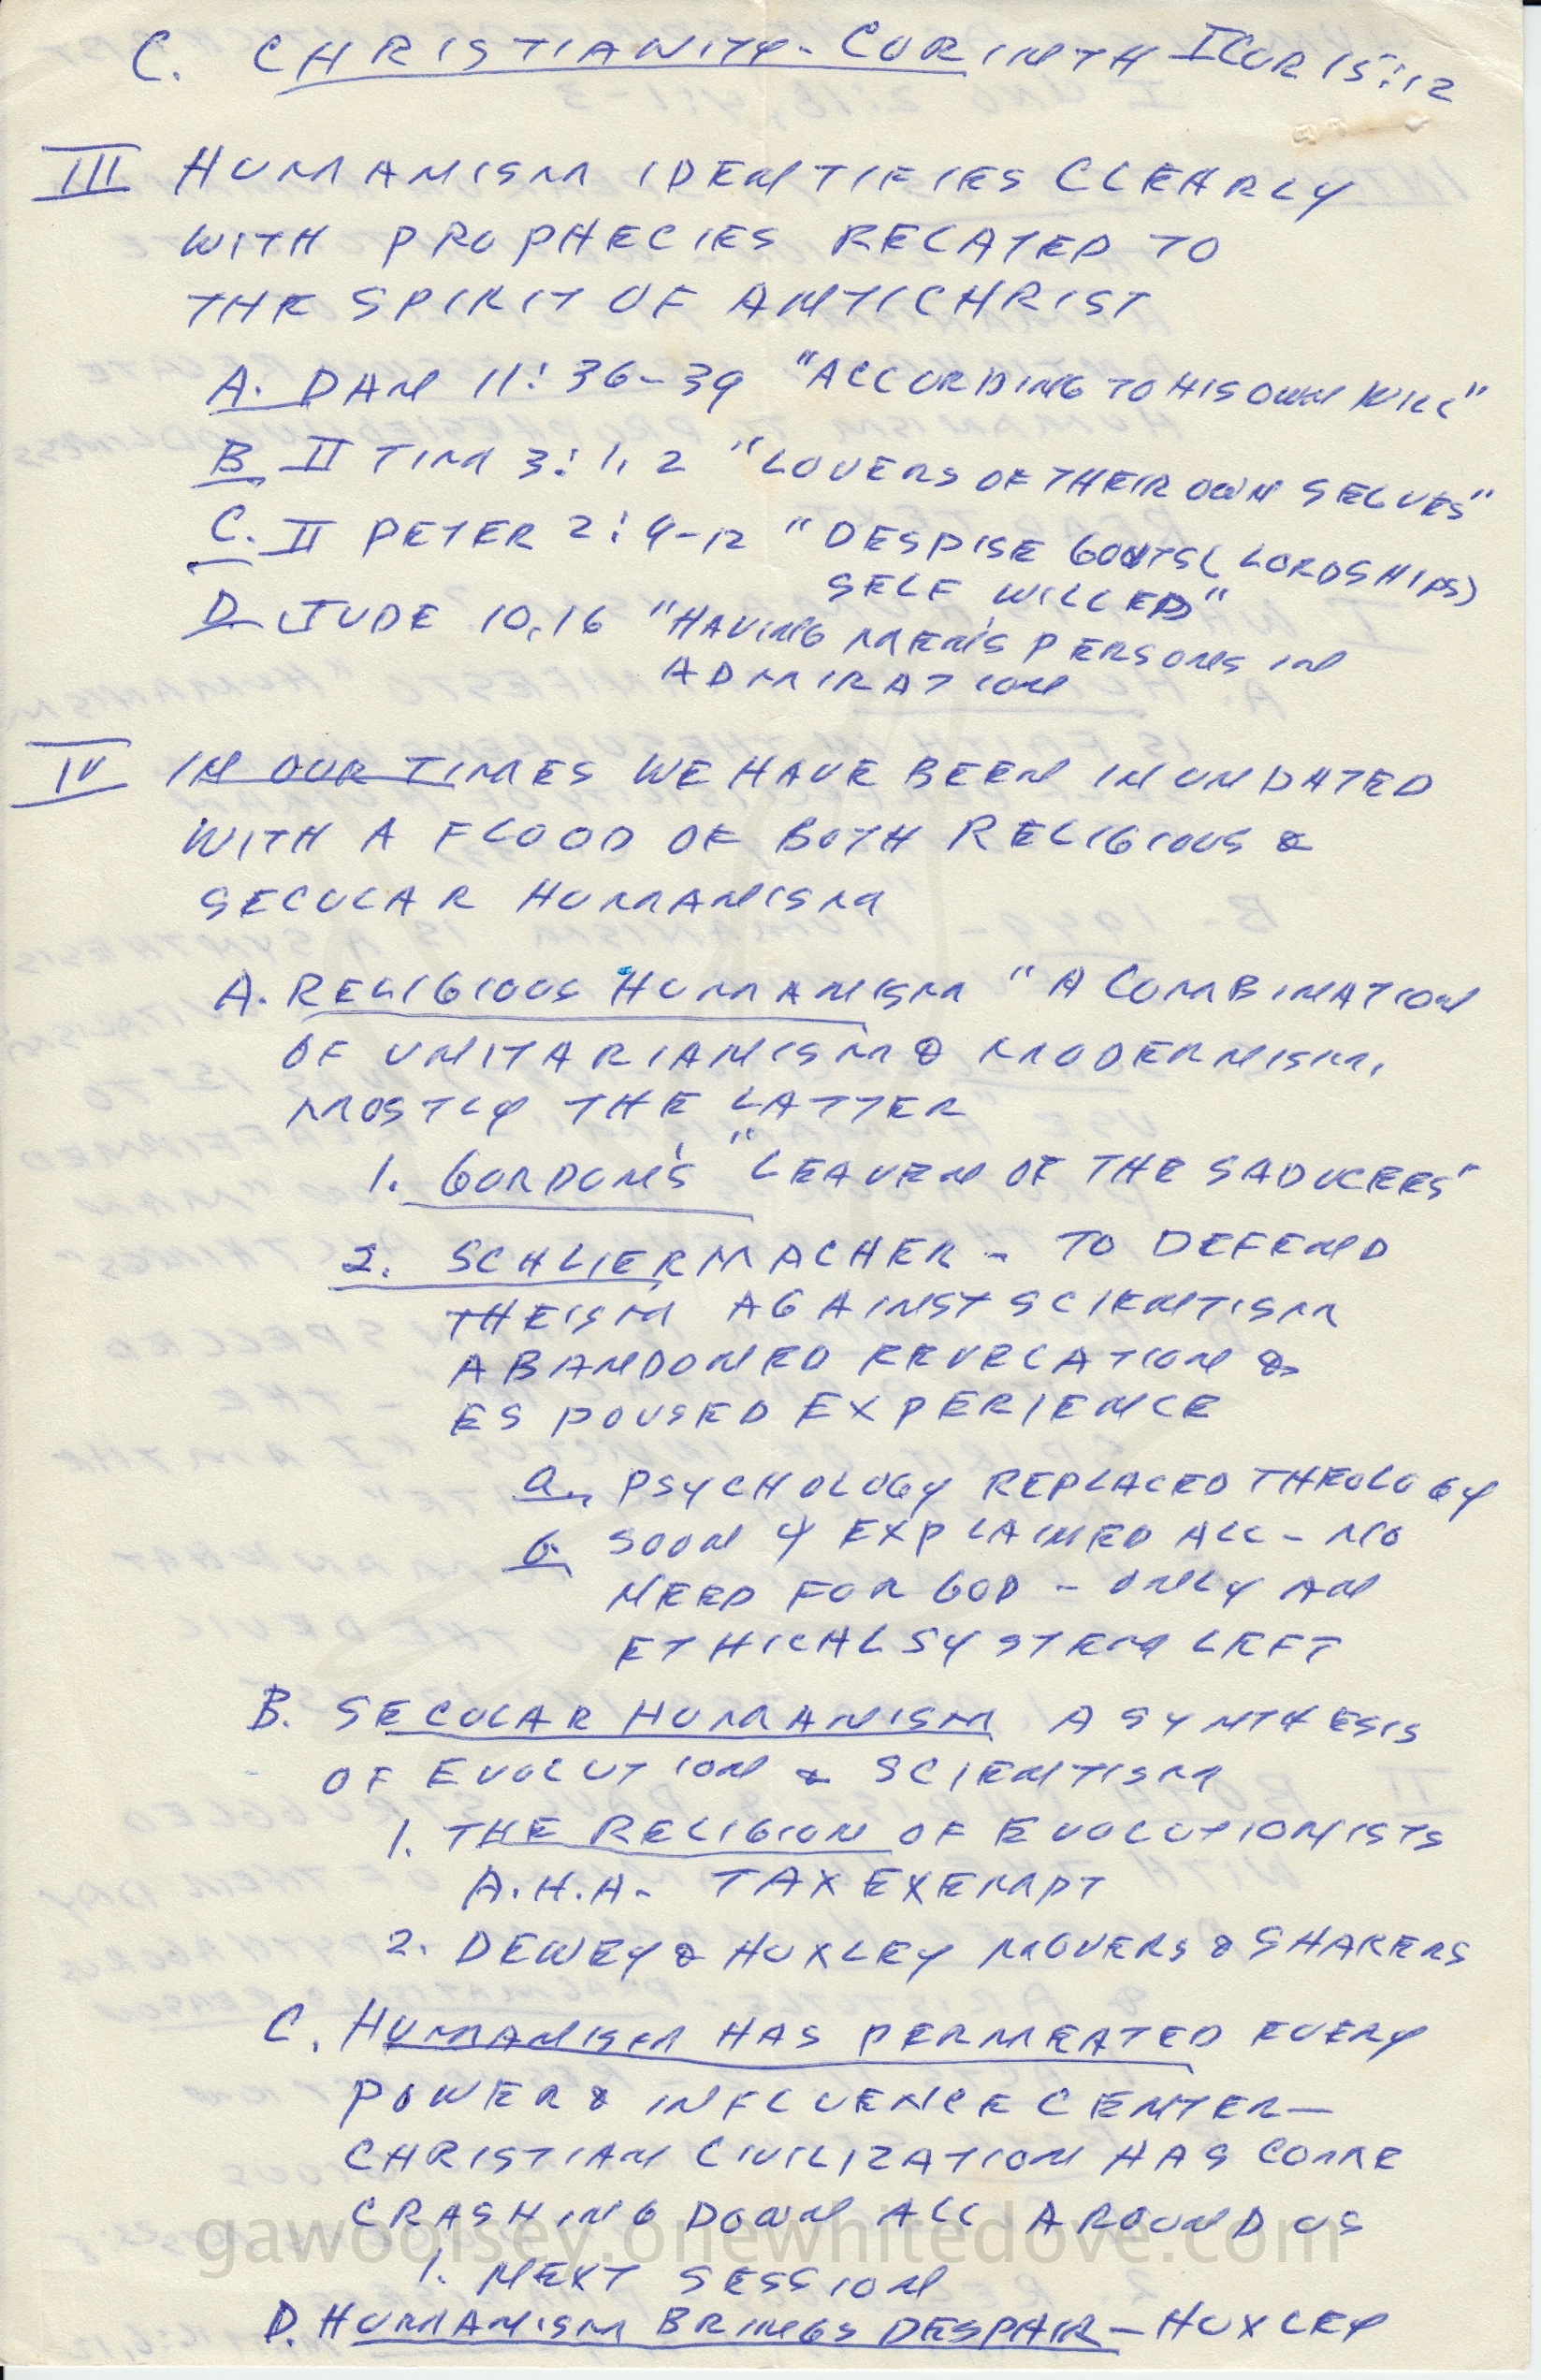 C. CHRISTIANITY - CORINTH I COR 15:12
III HUMANISM IDENTIFIES CLEARLY
WITH PROPHECIES RELATED TO
THE SPIRIT OF ANTICHRIST
A. DAN 11:36-39 "ACCORDING TO HIS OWN WILL"
B II TIM 3:1,2 "LOVERS OF THEIR OWN SELVES"
C. II PETER 2:9-12 "DESPISE GOVTS (LORDSHIPS)
SELF WILLED"
D JUDE 10,16 "HAVING MEN'S PERSONS IN
ADMIRATION
IV IN OUR TIMES WE HAVE BEEN INUNDATED
WITH A FLOOD OF BOTH RELIGIOUS &
SECULAR HUMANISM
A. RELIGIOUS HUMANISM "A COMBINATION
OF UNITARIANISM & MODERNISM,
MOSTLY THE LATTER"
1. GORDON'S "LEAVEN OF THE SADUCEES"
2. SCHLIERMACHER - TO DEFEND
THEISM AGAINST SCIENTISM
ABANDONED REVELATION &
ESPOUSED EXPERIENCE
a. PSYCHOLOGY REPLACED THEOLOGY
b. SOON Y EXPLAINED ALL - NO
NEED FOR GOD - ONLY AN
ETHICAL SYSTEM LEFT
B. SECULAR HUMANISM A SYNTHESIS
OF EVOLUTION & SCIENTISM
1. THE RELIGION OF EVOLUTIONISTS
A.H.A. - TAX EXEMPT
2. DEWEY & HUXLEY MOVERS & SHAKERS
C. HUMANISM HAS PERMEATED EVERY
POWER & INFLUENCE CENTER -
CHRISTIAN CIVILIZATION HAS COME
CRASHING DOWN ALL AROUND US
gawoolsey.onewhitedove.com
1. NEXT SESSION
D. HUMANISM BRINGS DESPAIR - HUXLEY